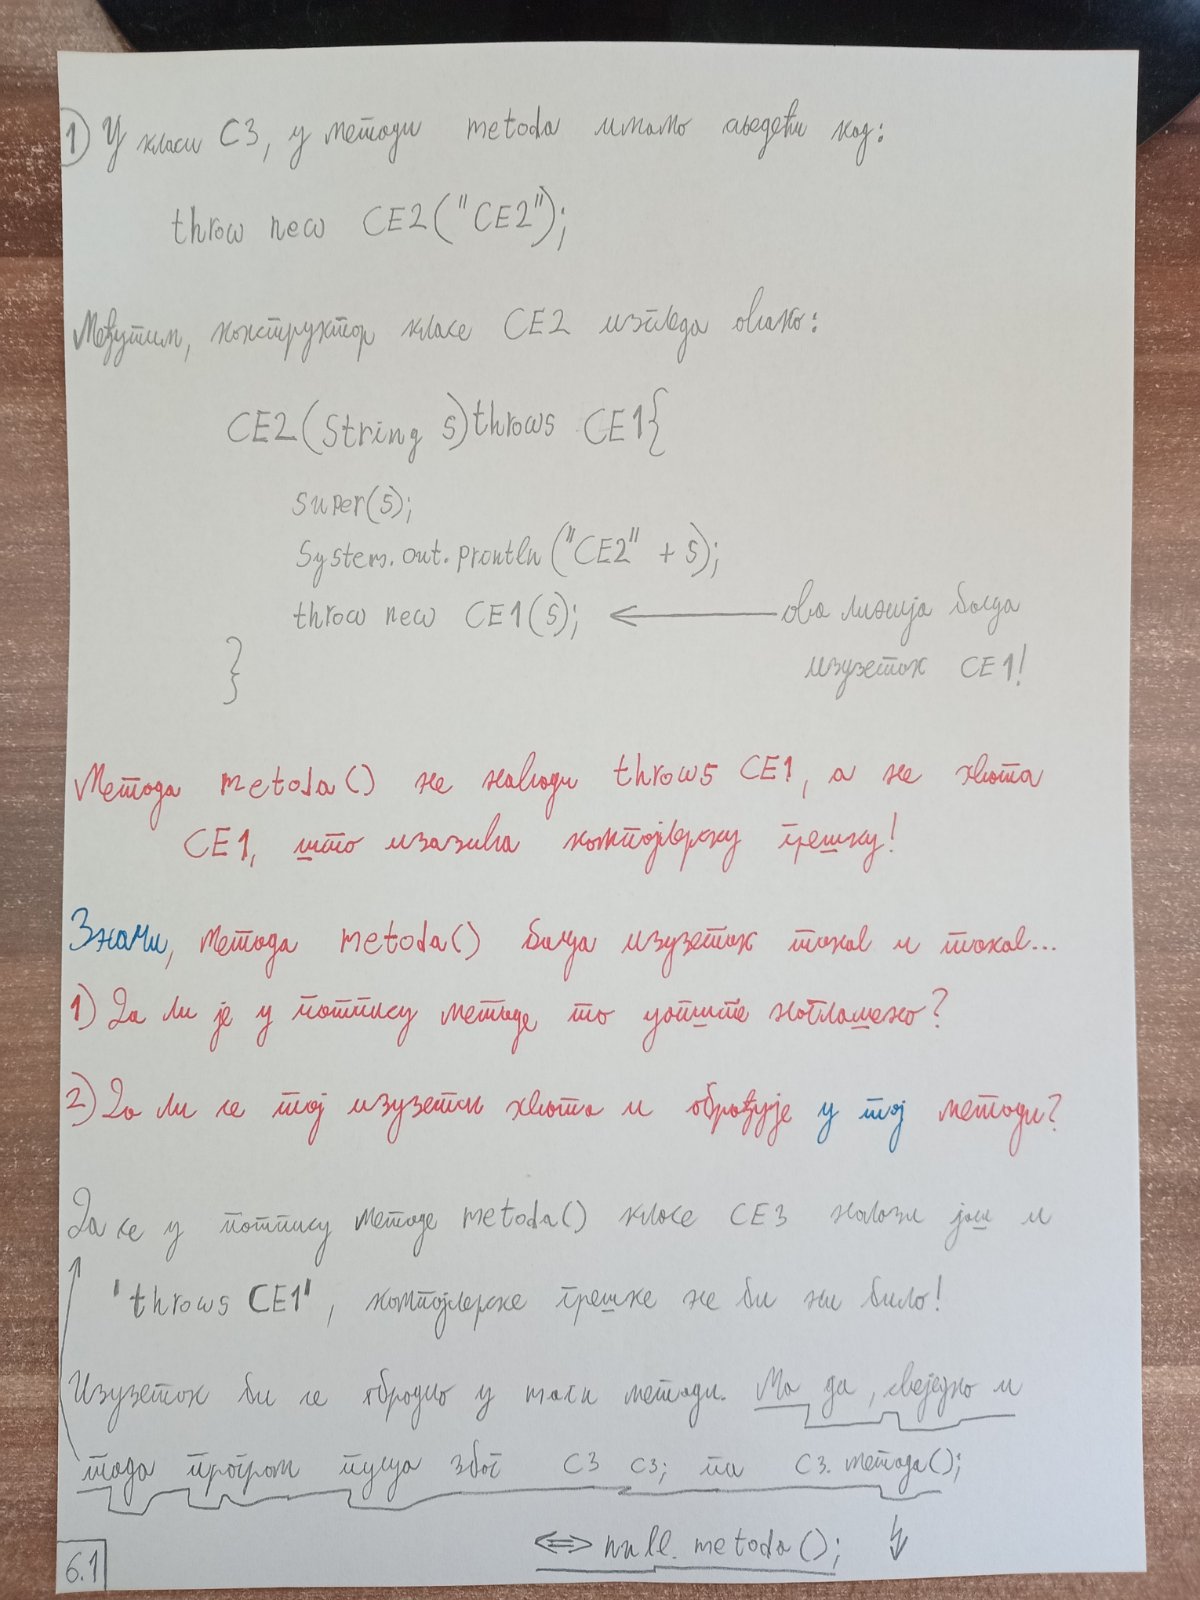 1) У класи C3, у методи metoda имамо следећи код:
throw new CE2("CE2");
Међутим, конструктор класе CE2 изгледа овако:
CE2(String s) throws CE1{
super(s);
System.out.println("CE2" + s);
throw new CE1(s); ← ова линија баца
изузетак CE1!
}
Метода metoda() не наводи throws CE1, а не хвата
CE1, што изазива компајлерску грешку!
Значи, метода metoda() баца изузетак такав и такав...
1) Да ли је у потпису методе то уопште наглашено?
2) Да ли се тај изузетак хвата и обрађује у тој методи?
Да се у потпису методе metoda() класе CE3 налази још и
"throws CE1", компајлерске грешке не би ни било!
Изузетак би се обрадио у main методи. Ма да, свеједно и
тада програм пуца због C3 c3; па c3.метода();
⟺ null.metoda();
6.1